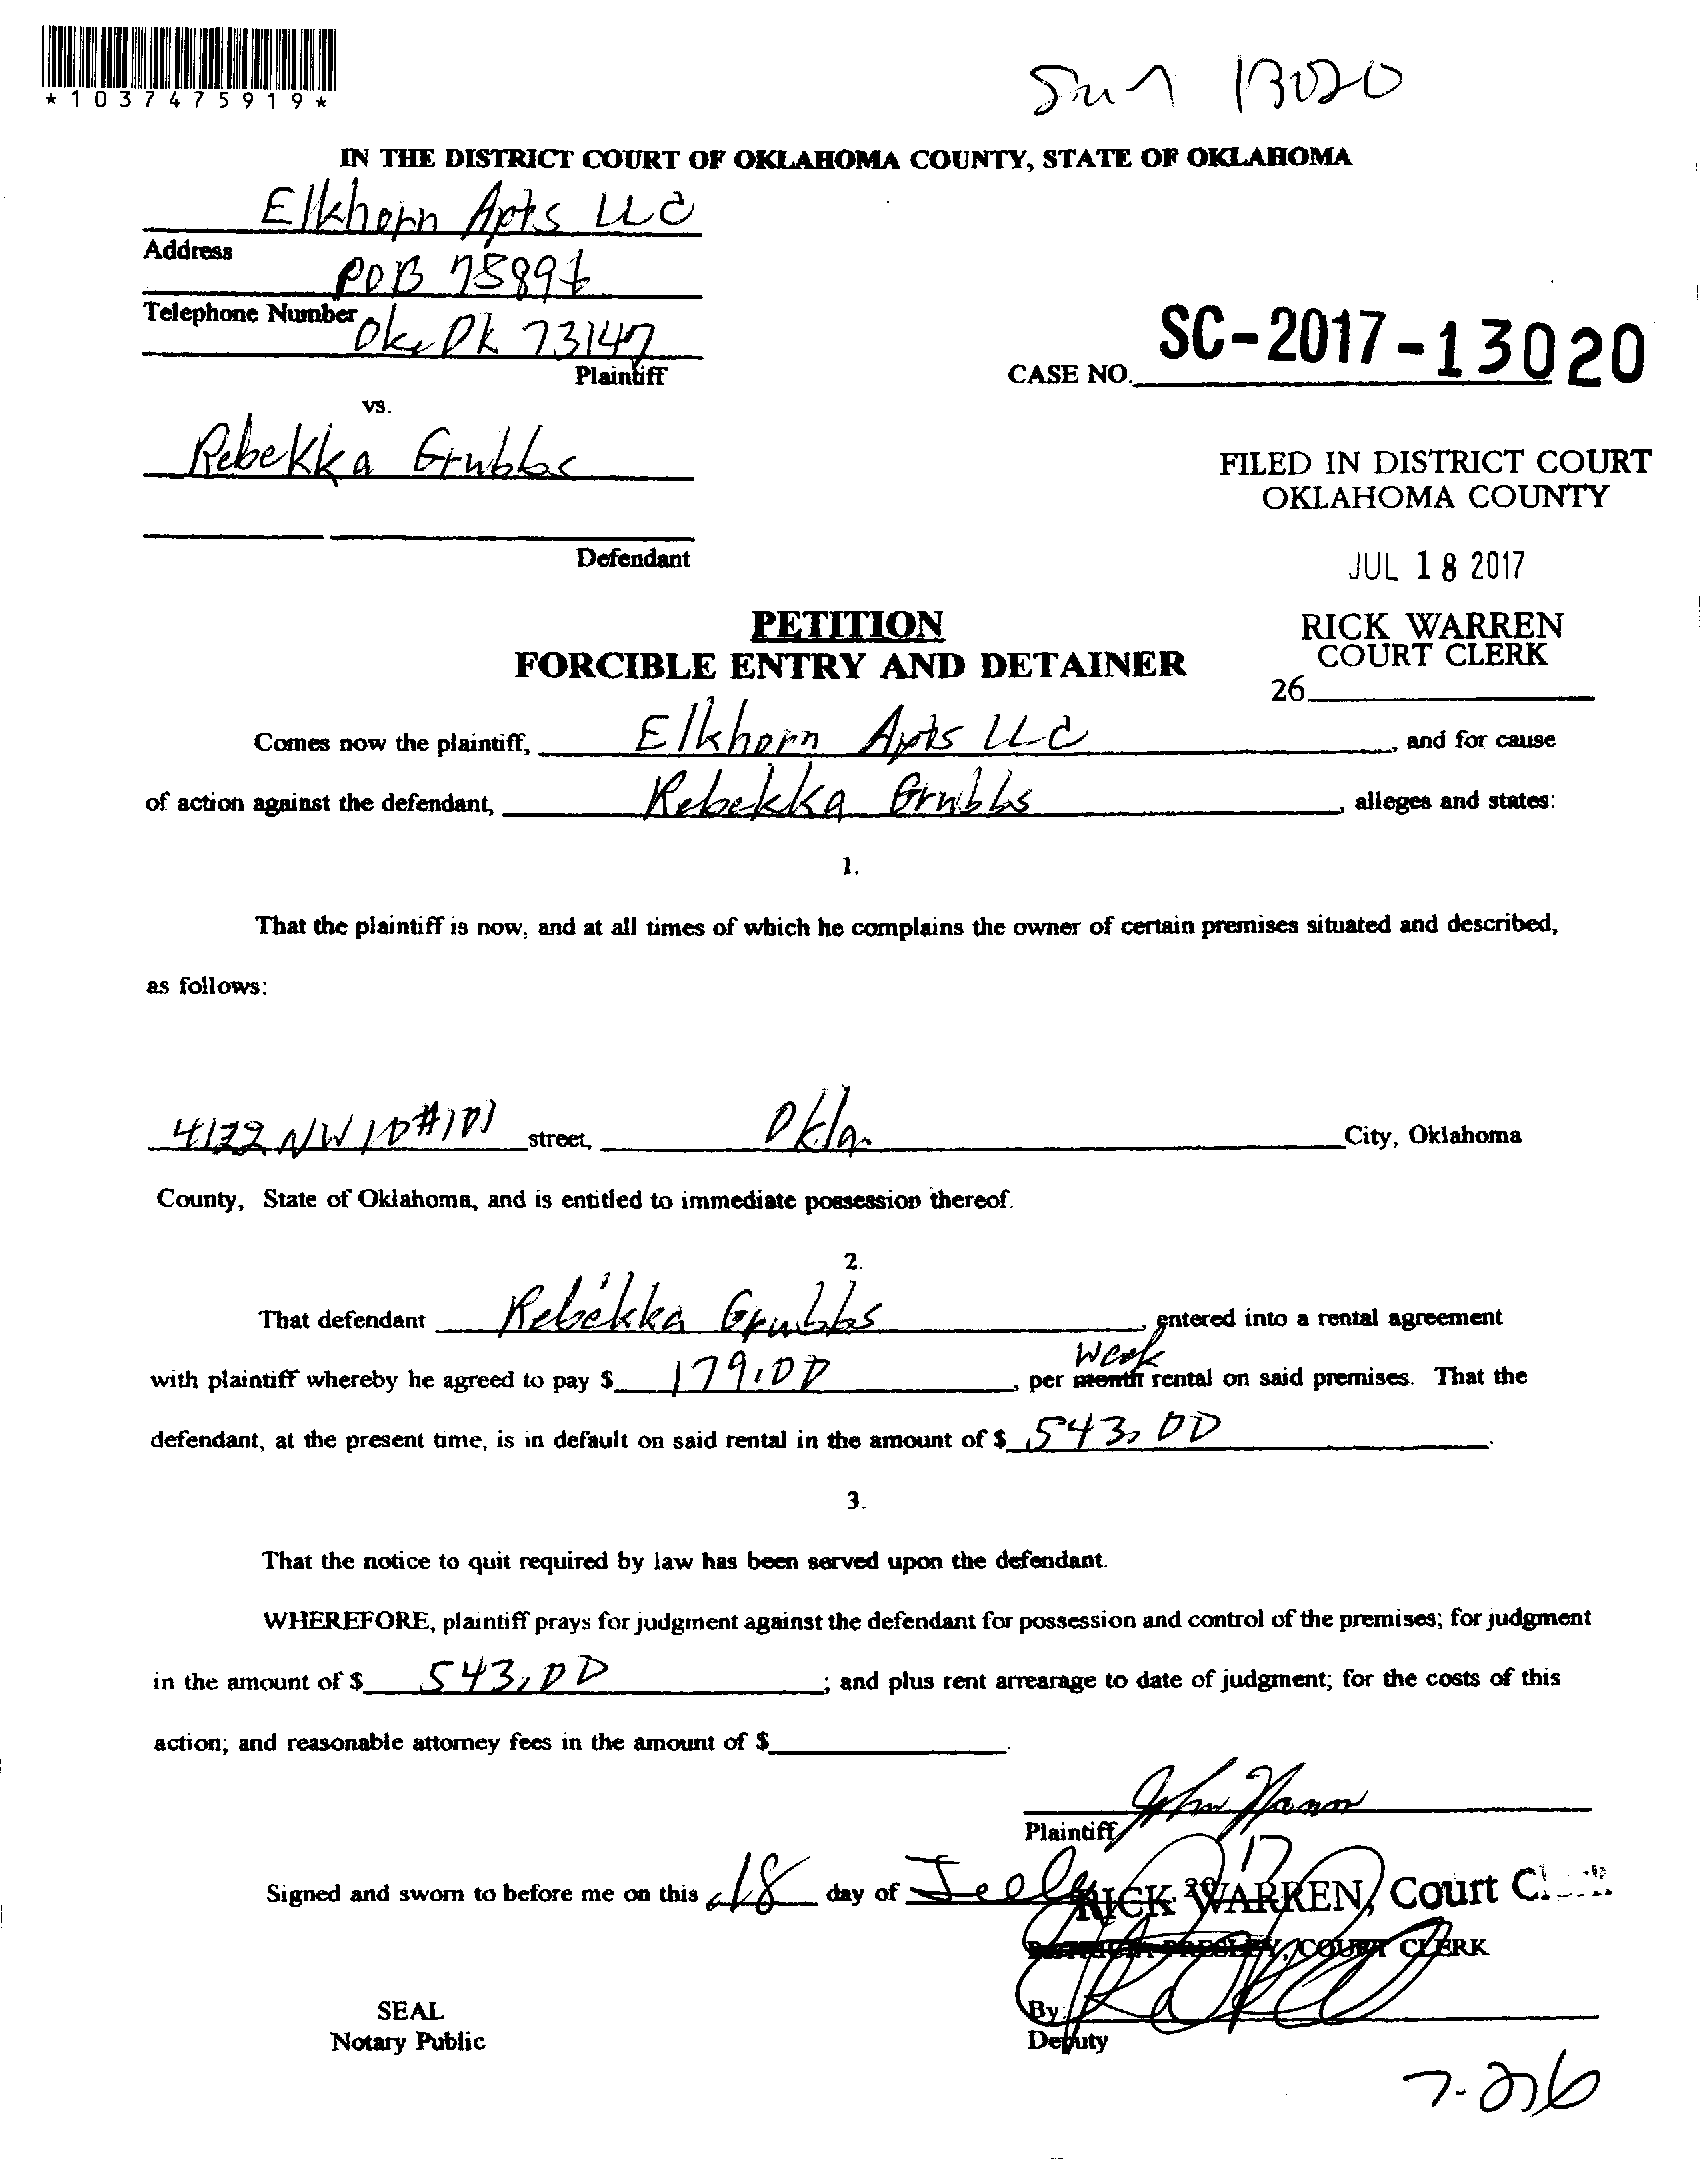 *1037475919*
13020
IN THE DISTRICT COURT OF OKLAHOMA COUNTY, STATE OF OKLAHOMA
Elkhorn Apts LLC
Address
POB 75896
Telephone Number
Okc Ok 73147
Plaintiff
CASE NO. SC-2017-13020
vs.
Rebekka Grubbs
FILED IN DISTRICT COURT
OKLAHOMA COUNTY
Defendant
JUL 18 2017
PETITION
FORCIBLE ENTRY AND DETAINER
RICK WARREN
COURT CLERK
26
Comes now the plaintiff, Elkhorn Apts LLC, and for cause
of action against the defendant, Rebekka Grubbs, alleges and states:
1.
That the plaintiff is now, and at all times of which he complains the owner of certain premises situated and described,
as follows:
4122 NW 10 #101 street, Okla City, Oklahoma
County, State of Oklahoma, and is entitled to immediate possession thereof.
2.
That defendant Rebekka Grubbs, entered into a rental agreement
with plaintiff whereby he agreed to pay $ 179.00, per month Week rental on said premises. That the
defendant, at the present time, is in default on said rental in the amount of $ 543.00.
3.
That the notice to quit required by law has been served upon the defendant.
WHEREFORE, plaintiff prays for judgment against the defendant for possession and control of the premises; for judgment
in the amount of $ 543.00; and plus rent arrearage to date of judgment; for the costs of this
action; and reasonable attorney fees in the amount of $
Plaintiff
Signed and sworn to before me on this 18 day of July 2017
RICK WARREN, Court Clerk
PATRICIA PRESLEY, COURT CLERK
SEAL
Notary Public
By
Deputy